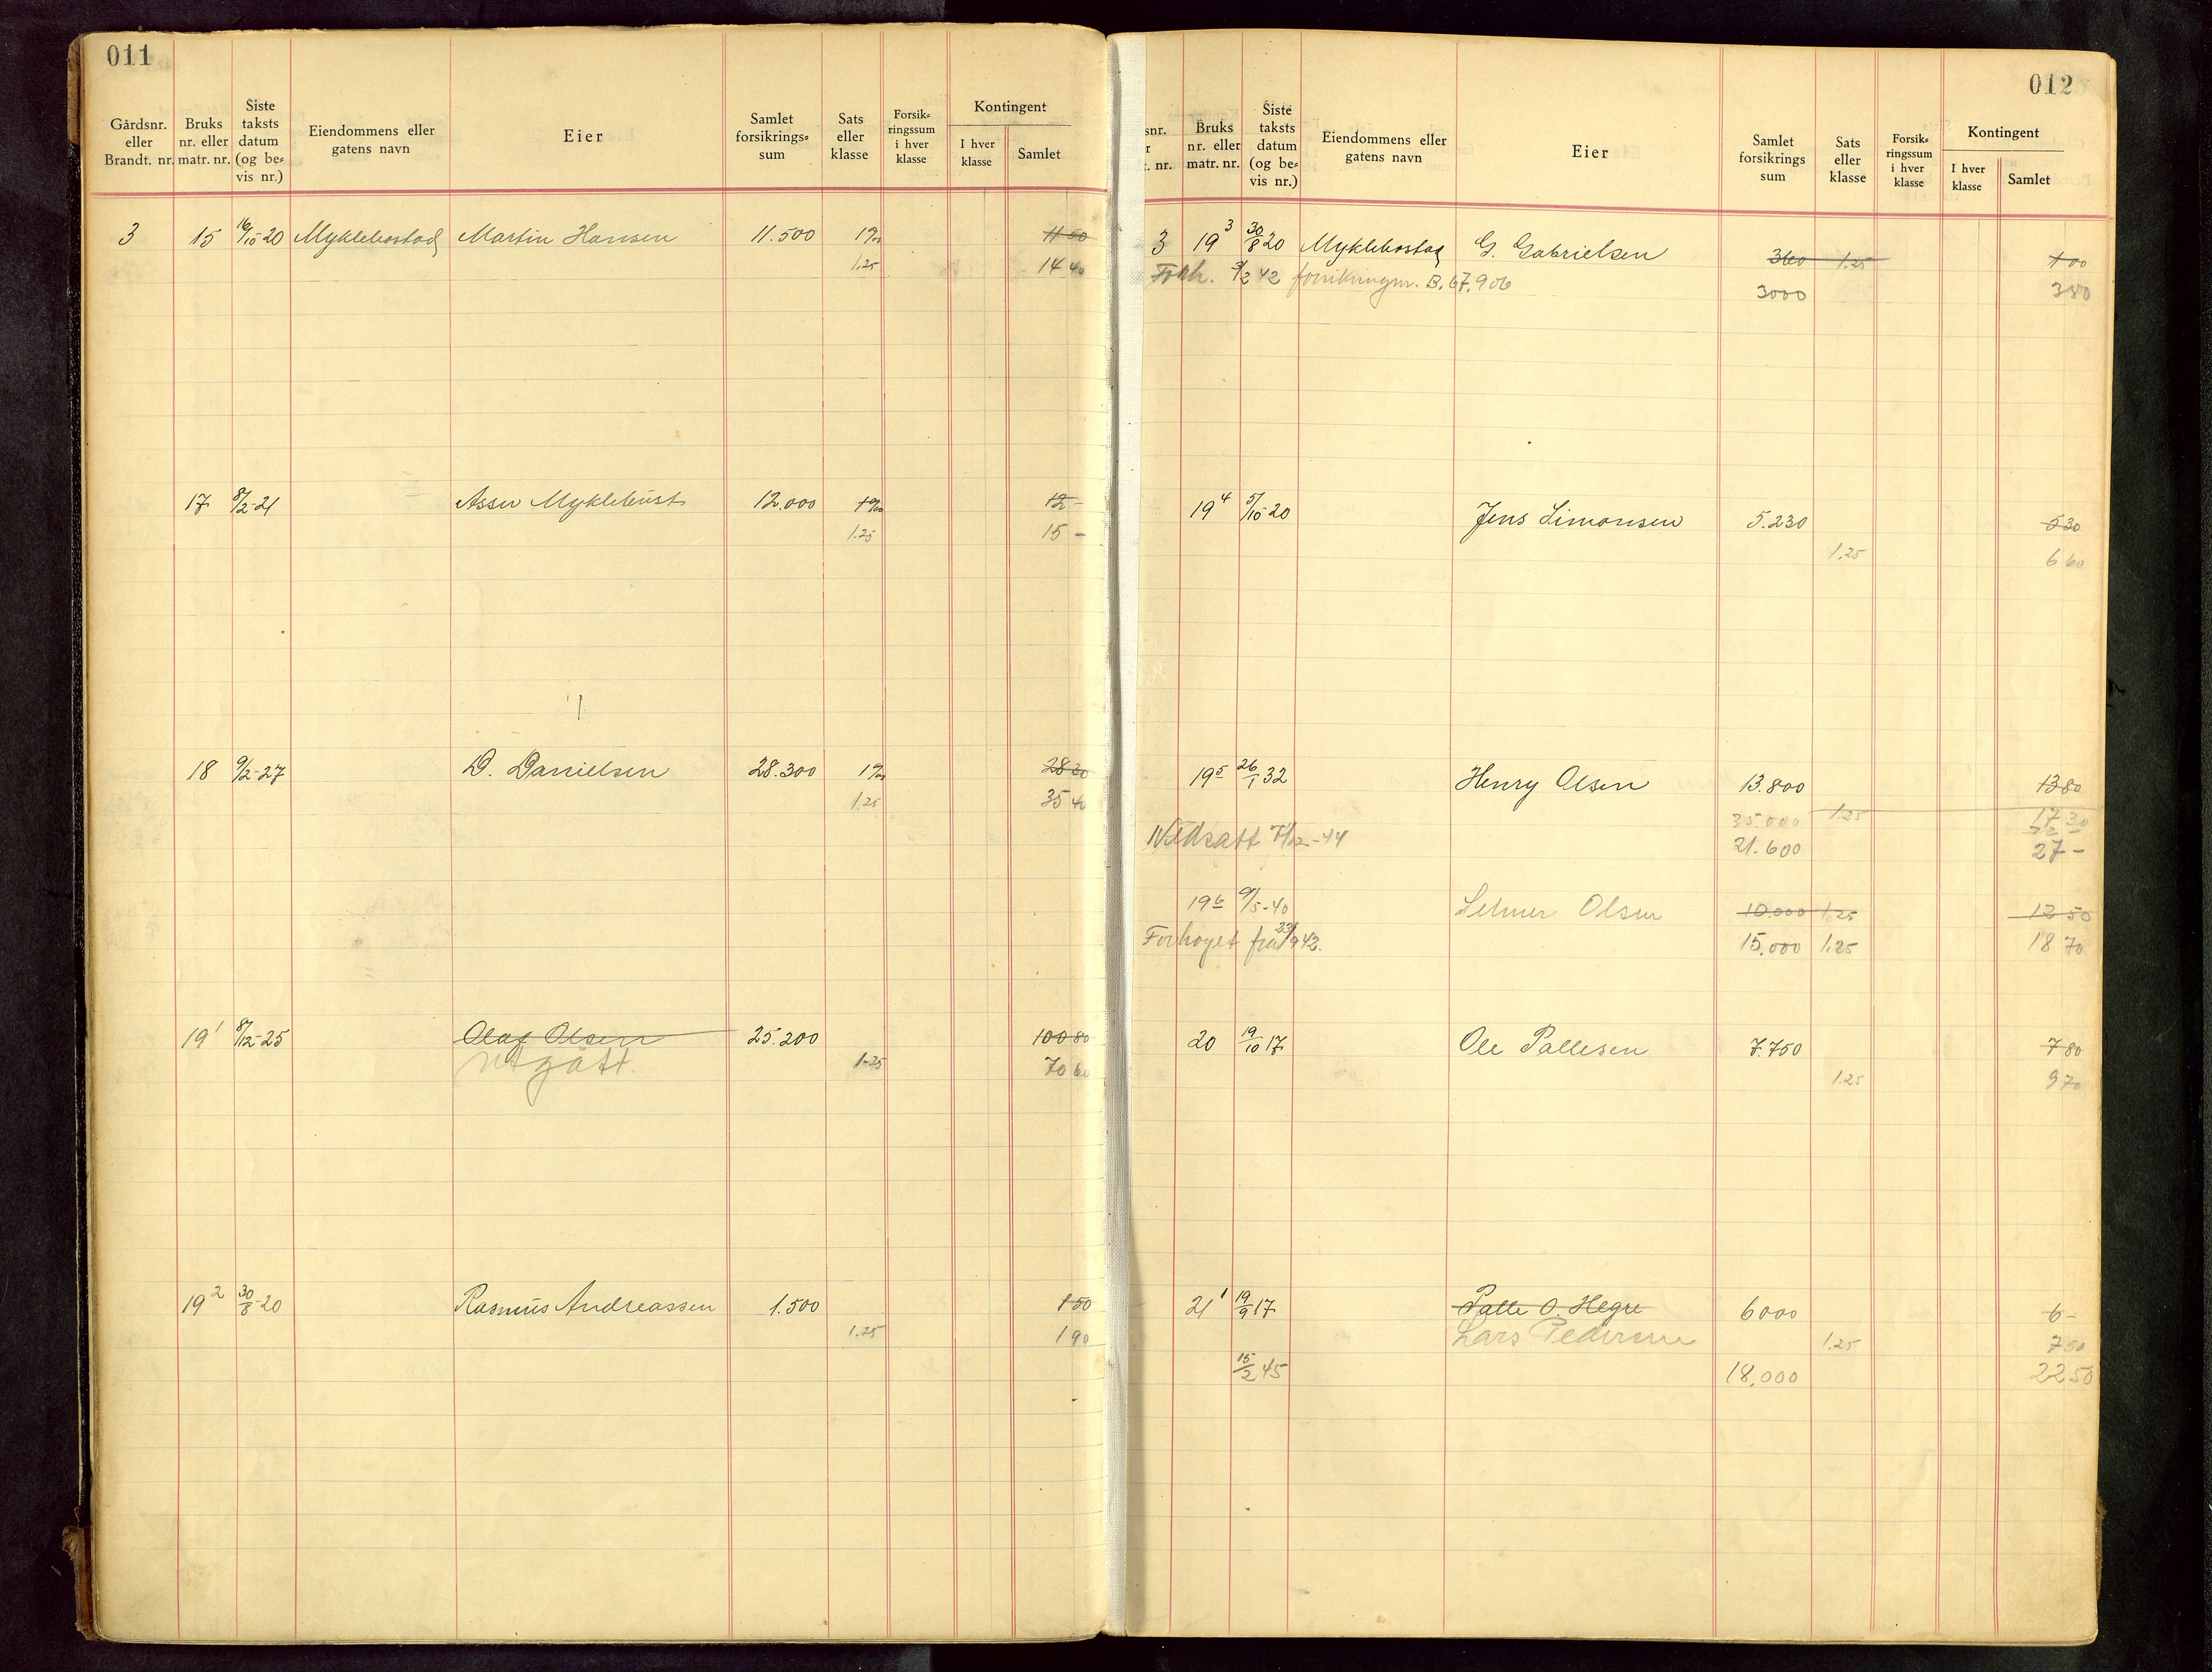 011
Gårdsnr. eller Brandt. nr. Bruks nr. eller matr. nr. Siste taksts datum (og be= vis nr.) Eiendommens eller gatens navn Eier Samlet forsikrings= sum Sats eller klasse Forsik= ringssum i hver klasse Kontingent I hver klasse Samlet
3 15 16/10 20 Myklebostad Martin Hansen 11.500 1‰ 11 50
1.25 14 40
17 8/2-21 Asser Myklebust 12.000 1‰ 12 -
1.25 15 -
18 9/2-27 D. Danielsen 28.300 1‰ 28 30
1.25 35 40
19¹ 8/12-25 Olaf Olsen 25.200 100 80
Utgått. 1.25 70 60
19² 30/8-20 Rasmus Andreassen 1.500 1 50
1.25 1 90
012
snr. r t. nr. Bruks nr. eller matr. nr. Siste taksts datum (og be= vis nr.) Eiendommens eller gatens navn Eier Samlet forsikrings sum Sats eller klasse Forsik= ringssum i hver klasse Kontingent I hver klasse Samlet
3 19³ 30/8 20 Myklebostad G. Gabrielsen 360 1.25 1 00
Forh. 3/2 42 forsikringnr. B.67.906 3000 3 80
19⁴ 5/10 20 Jens Simonsen 5.230 5 30
1.25 6 60
19⁵ 26/1 32 Henry Olsen 13.800 13 80
35.000 1.25 17 30
Nedsatt 7/12-44 21.600 27 -
19⁶ 9/5-40 Selmer Olsen 10.000 1.25 12 50
Forhøyet fra 23/9 42. 15.000 1.25 18 70
20 19/10 17 Ole Pallesen 7.750 7 80
1.25 9 70
21¹ 19/9 17 Palle O. Hegre 6000 6 -
Lars Pedersen 1.25 7 50
15/2 45 18.000 22 50